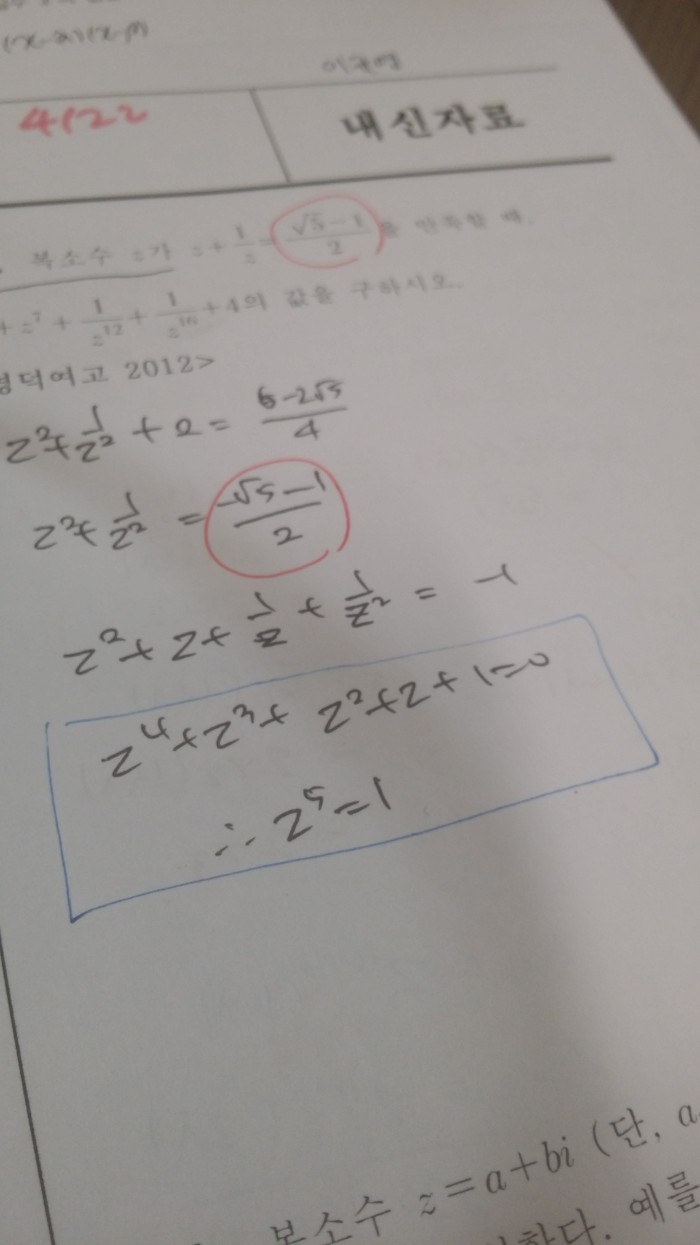 4122
내신자료
복소수 z가 z + 1/z = (√5 - 1)/2 를 만족할 때,
+ z⁷ + 1/z¹² + 1/z¹⁶ + 4의 값을 구하시오.
덕여고 2012>
z² + 1/z² + 2 = (6-2√5)/4
z² + 1/z² = (-√5-1)/2
z² + z + 1/z + 1/z² = -1
z⁴ + z³ + z² + z + 1 = 0
∴ z⁵ = 1
복소수 z = a + bi (단, a
예를